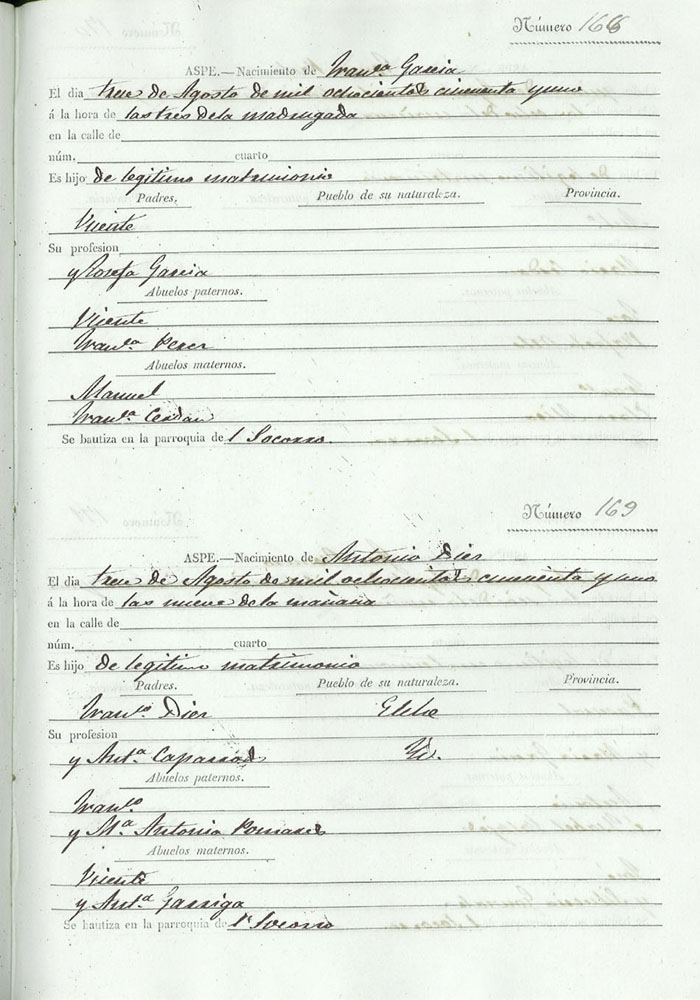 Número 168
ASPE.—Nacimiento de Franca. Garcia
El dia trece de Agosto de mil ochocientos cincuenta y uno
á la hora de las tres de la madrugada
en la calle de
núm. cuarto
Es hijo de legitimo matrimonio
Padres. Pueblo de su naturaleza. Provincia.
Vicente
Su profesion
y Josefa Garcia
Abuelos paternos.
Vicente
Franca. Perez
Abuelos maternos.
Manuel
Franca. Cerdan
Se bautiza en la parroquia de l Socorro
Número 169
ASPE.—Nacimiento de Antonio Dies
El dia trece de Agosto de mil ochocientos cincuenta y uno
á la hora de las nueve de la mañana
en la calle de
núm. cuarto
Es hijo de legitimo matrimonio
Padres. Pueblo de su naturaleza. Provincia.
Franco. Dies Elche
Su profesion
y Anta. Caparros Yd.
Abuelos paternos.
Franco.
y Ma. Antonia Pomares
Abuelos maternos.
Vicente
y Anta. Garriga
Se bautiza en la parroquia de l Socorro